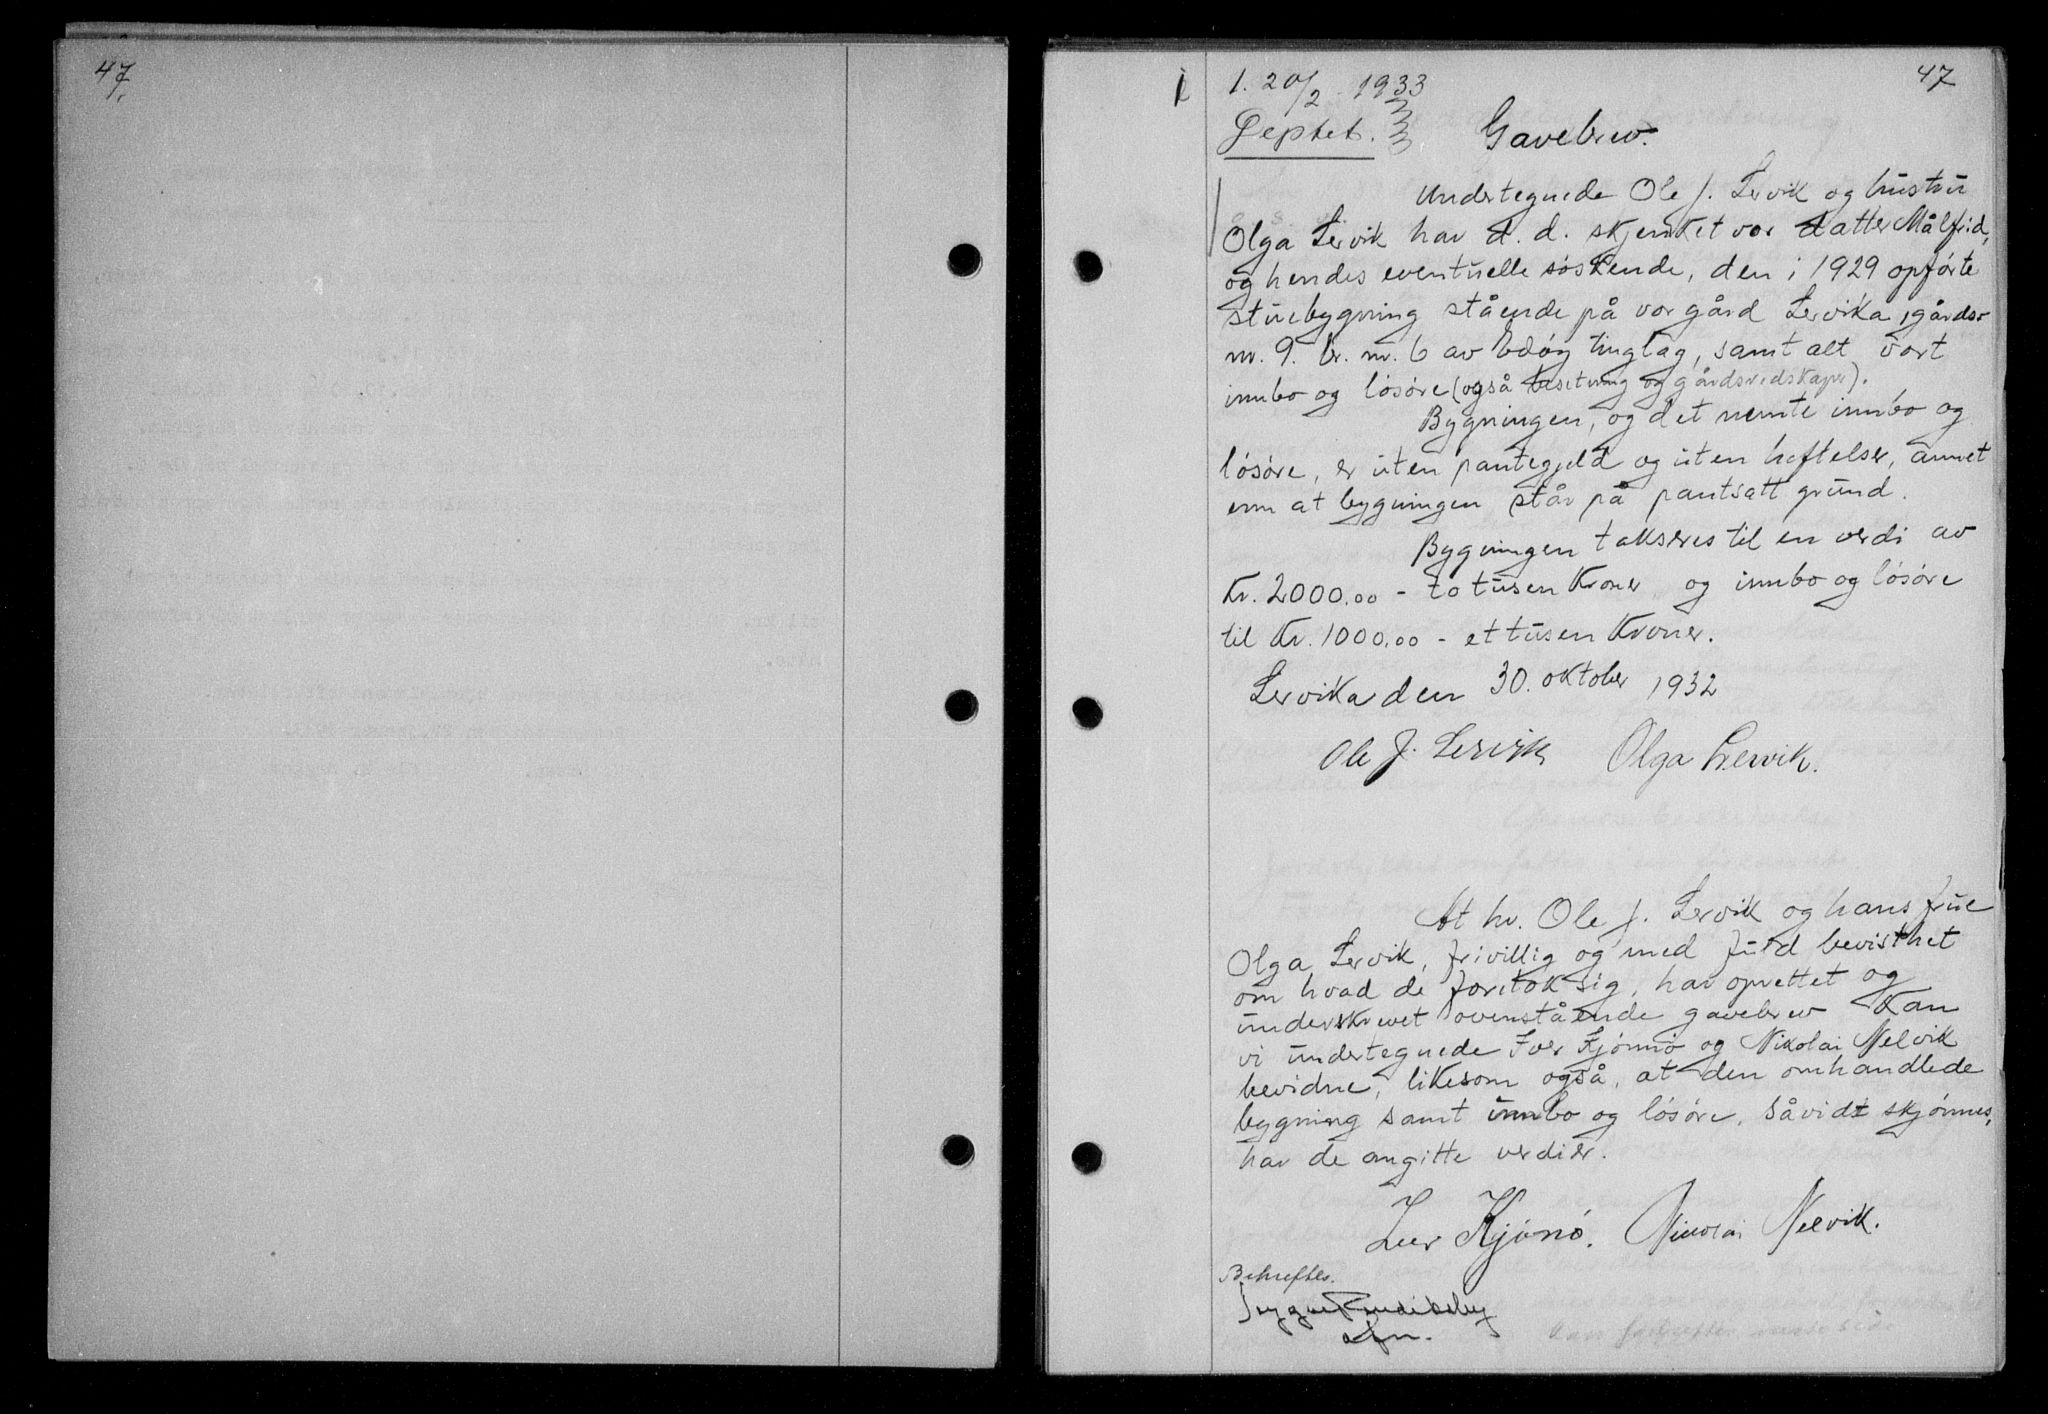 47.
47
1. 20/2 1933
Gavebrev.
Undertegnede Ole J. Lervik og hustru
Olga Lervik har d. d. skjenket vor datter Målfrid,
og hendes eventuelle søskende, den i 1929 opførte
stuebygning stående på vor gård Lervika, gårds-
nr. 9. br. nr. 6 av Edøy tinglag, samt alt vort
innbo og løsøre (også besetning og gårdsredskaper).
Bygningen, og det nevnte innbo og
løsøre, er uten pantegjeld og uten heftelser, annet
enn at bygningen står på pantsatt grund.
Bygningen takseres til en verdi av
Kr. 2000.00 - to tusen Kroner og innbo og løsøre
til Kr. 1000.00 - et tusen Kroner.
Lervika den 30. oktober 1932
Ole J. Lervik Olga Lervik.
At hr. Ole J. Lervik og hans frue
Olga Lervik, frivillig og med fuld bevisthet
om hvad de foretok sig, har oprettet og
underskrevet ovenstående gavebrev kan
vi undertegnede Iver Kjønnø og Nikolai Nelvik
bevidne, likesom også, at den omhandlede
bygning samt innbo og løsøre, såvidt skjønnes,
har de angitte verdier.
Iver Kjønø. Nicolai Nelvik.
Bekreftes.